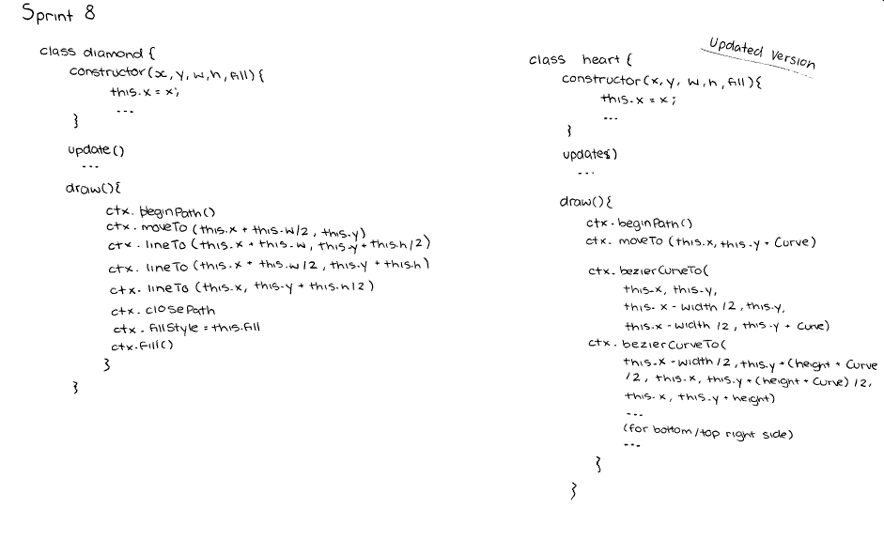 Sprint 8
class diamond {
constructor(x, y, w, h, fill){
this.x = x;
...
}
update()
...
draw(){
ctx. beginPath()
ctx. moveTo (this.x + this.w/2, this.y)
ctx. lineTo (this.x + this.w, this.y + this.h/2)
ctx. lineTo (this.x + this.w/2, this.y + this.h)
ctx. lineTo (this.x, this.y + this.h/2)
ctx. closePath
ctx. fillStyle = this.fill
ctx.fill()
}
}
Updated Version
class heart {
constructor(x, y, w, h, fill){
this.x = x;
...
}
update()
...
draw(){
ctx. beginPath()
ctx. moveTo (this.x, this.y + Curve)
ctx. bezierCurveTo(
this.x, this.y,
this.x - width /2, this.y,
this.x - width /2, this.y + Curve)
ctx. bezierCurveTo(
this.x - width /2, this.y + (height + Curve
/2, this.x, this.y + (height + Curve) /2,
this.x, this.y + height)
...
(for bottom/top right side)
...
}
}